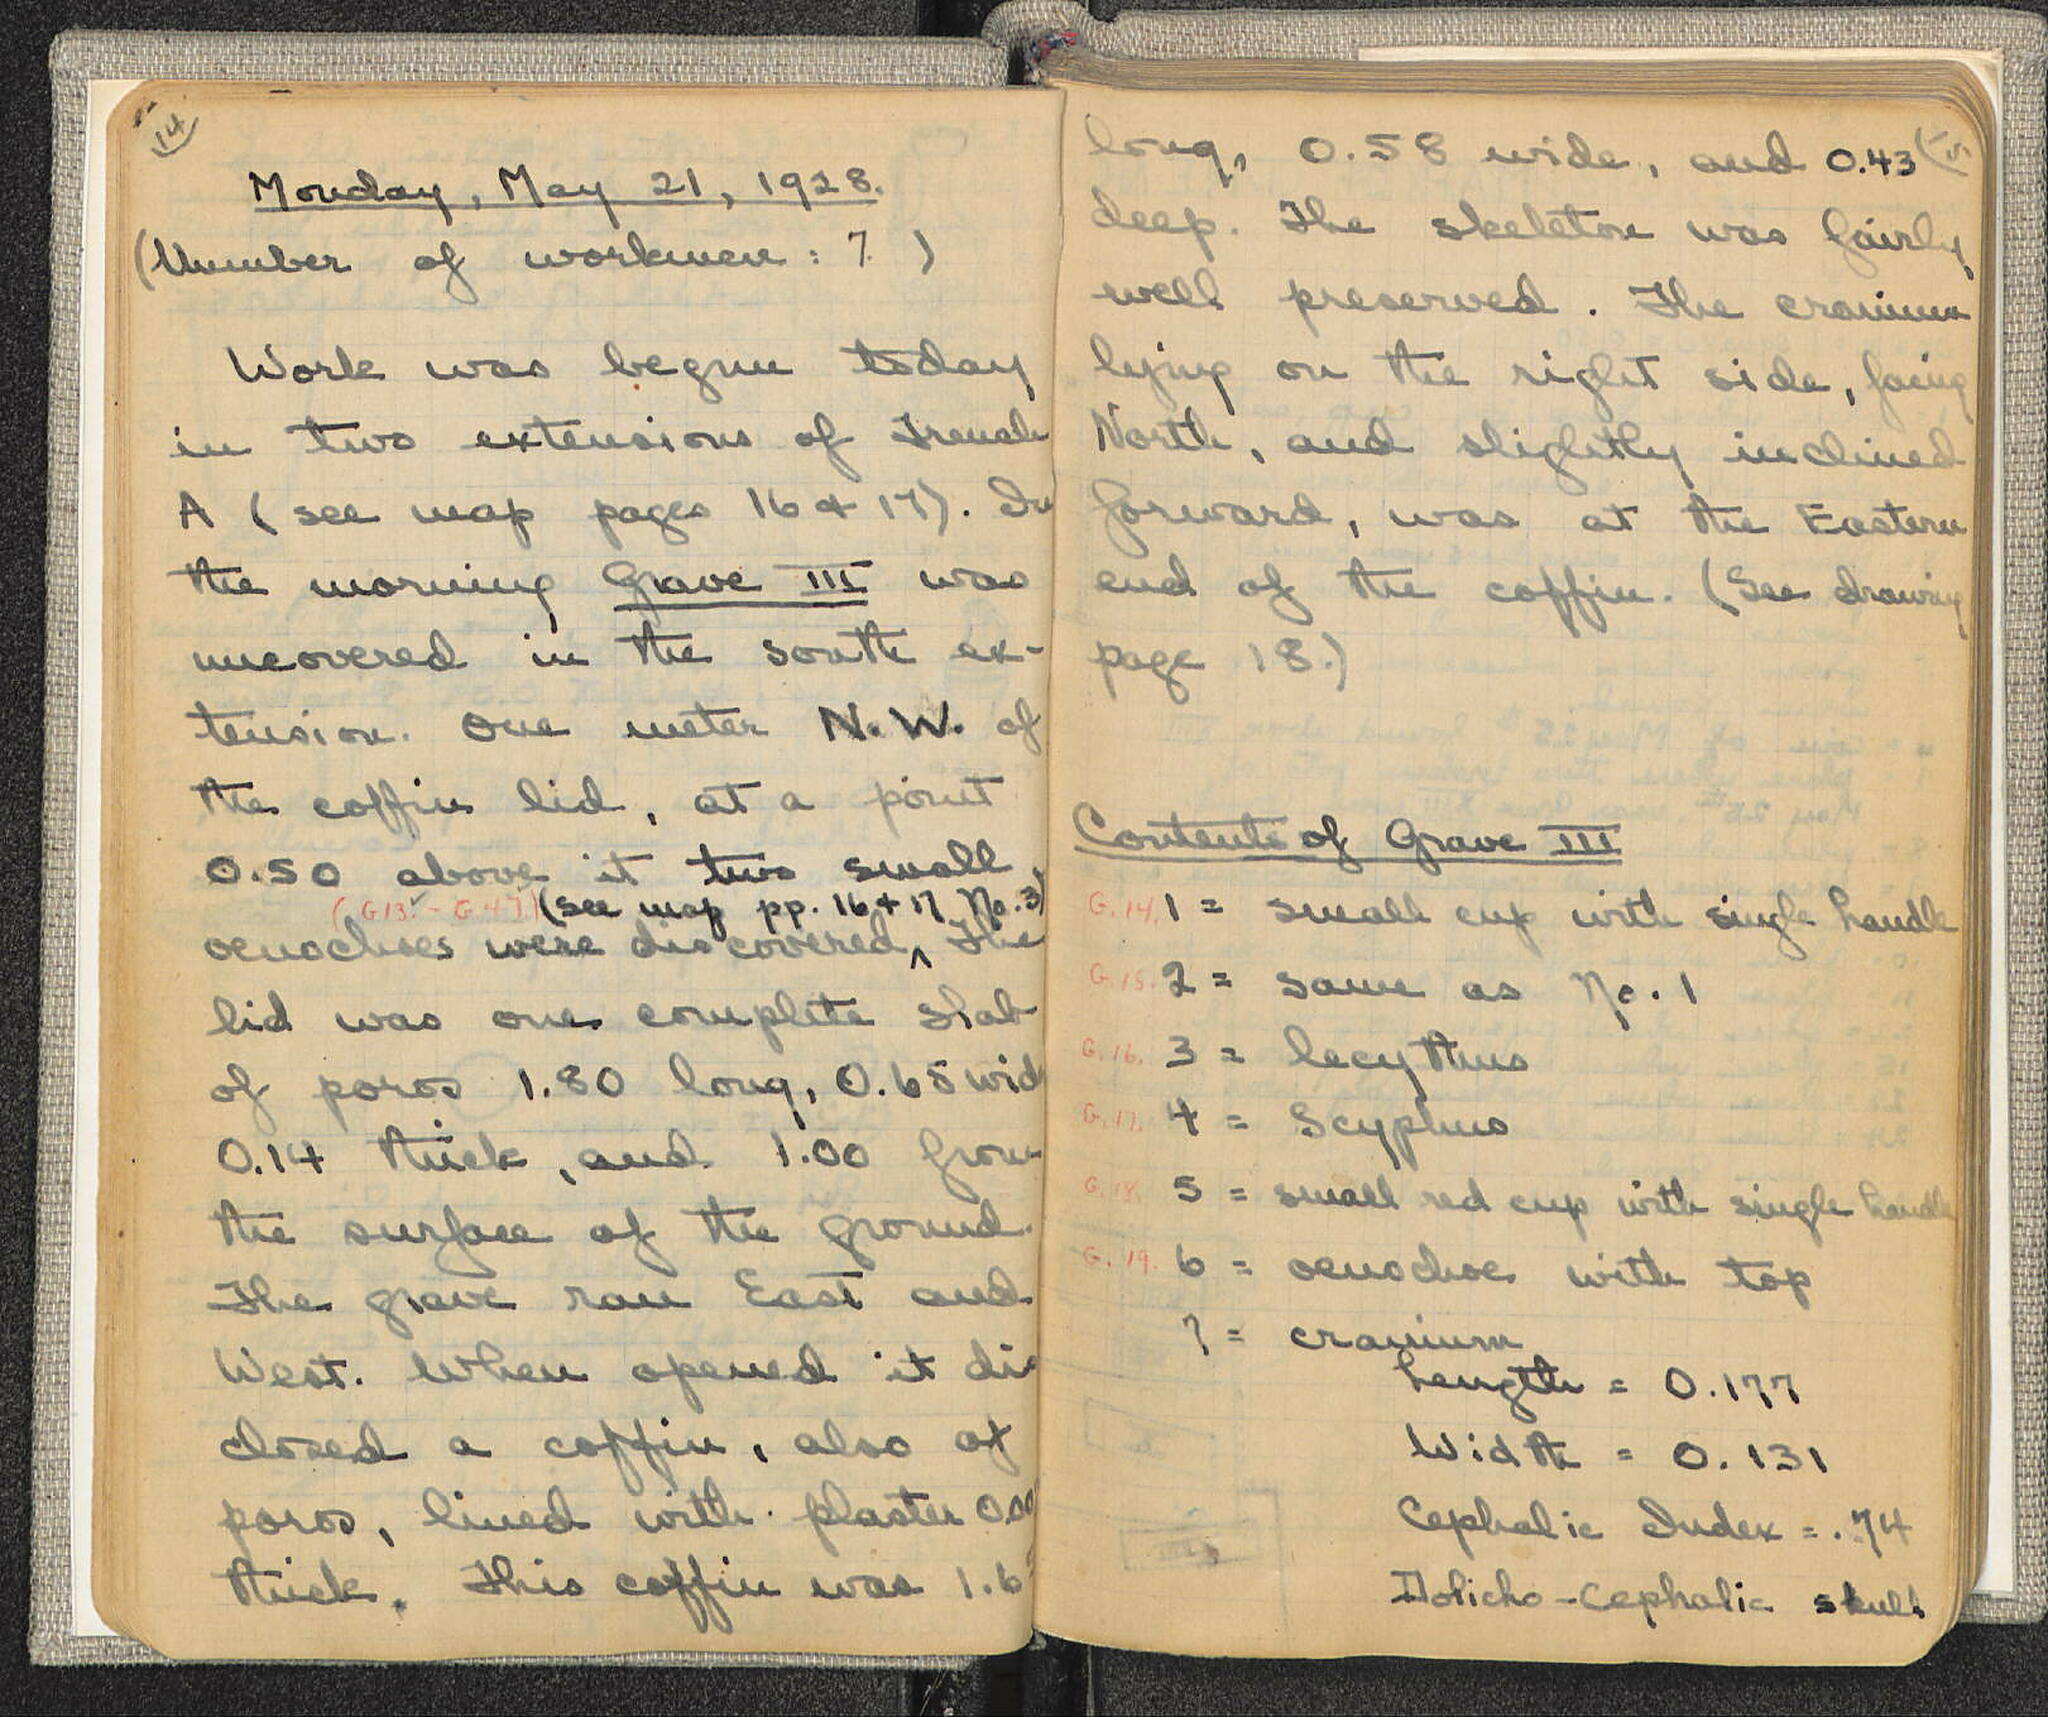 14
Monday, May 21, 1928.
(Number of workmen: 7.)
Work was begun today
in two extensions of Trench
A (see map pages 16 & 17). In
the morning Grave III was
uncovered in the south ex-
tension. One meter N.W. of
the coffin lid, at a point
0.50 above it two small
(see map pp. 16 & 17 No. 3)
oenochoes were discovered, The
lid was one complete slab
of poros 1.80 long, 0.65 wid
0.14 thick, and 1.00 from
the surface of the ground.
The grave ran East and
West. When opened it dis
closed a coffin, also of
poros, lined with plaster
thick. This coffin was
long, 0.58 wide, and 0.43
deep. The skeleton was fairly
well preserved. The cranium
lying on the right side, facing
North, and slightly inclined
forward, was at the Eastern
end of the coffin. (See drawing
page 18.)
Contents of Grave III
G.14. 1 = small cup with single handle
G.15. 2 = same as No. 1
G.16. 3 = lecythus
G.17. 4 = Scyphus
G.18. 5 = small red cup with single handle
G.19. 6 = oenochoe with top
7 = cranium
Length = 0.177
Width = 0.131
Cephalic Index = .74
Dolicho-Cephalic skull